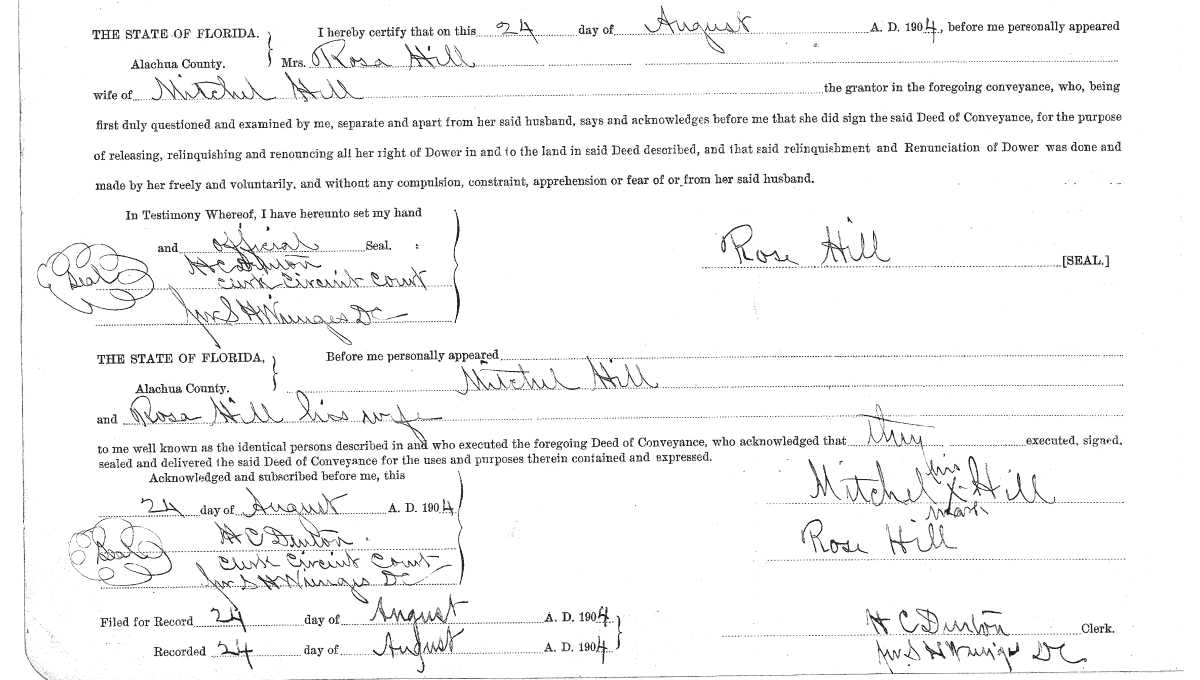 THE STATE OF FLORIDA. I hereby certify that on this 24 day of August A. D. 1904, before me personally appeared
Alachua County. Mrs. Rosa Hill
wife of Mitchel Hill the grantor in the foregoing conveyance, who, being
first duly questioned and examined by me, separate and apart from her said husband, says and acknowledges before me that she did sign the said Deed of Conveyance, for the purpose
of releasing, relinquishing and renouncing all her right of Dower in and to the land in said Deed described, and that said relinquishment and Renunciation of Dower was done and
made by her freely and voluntarily, and without any compulsion, constraint, apprehension or fear of or from her said husband.
In Testimony Whereof, I have hereunto set my hand
and official Seal.
Rose Hill [SEAL.]
Seal
H C Denton
Clerk Circuit Court
D C
THE STATE OF FLORIDA, Before me personally appeared
Alachua County. Mitchel Hill
and Rosa Hill his wife
to me well known as the identical persons described in and who executed the foregoing Deed of Conveyance, who acknowledged that they executed, signed,
sealed and delivered the said Deed of Conveyance for the uses and purposes therein contained and expressed.
Acknowledged and subscribed before me, this
his
Mitchel X Hill
mark
24 day of August A. D. 1904
Seal
H C Denton
Rose Hill
Clerk Circuit Court
D C
Filed for Record 24 day of August A. D. 1904
H C Denton Clerk.
Recorded 24 day of August A. D. 1904
D C